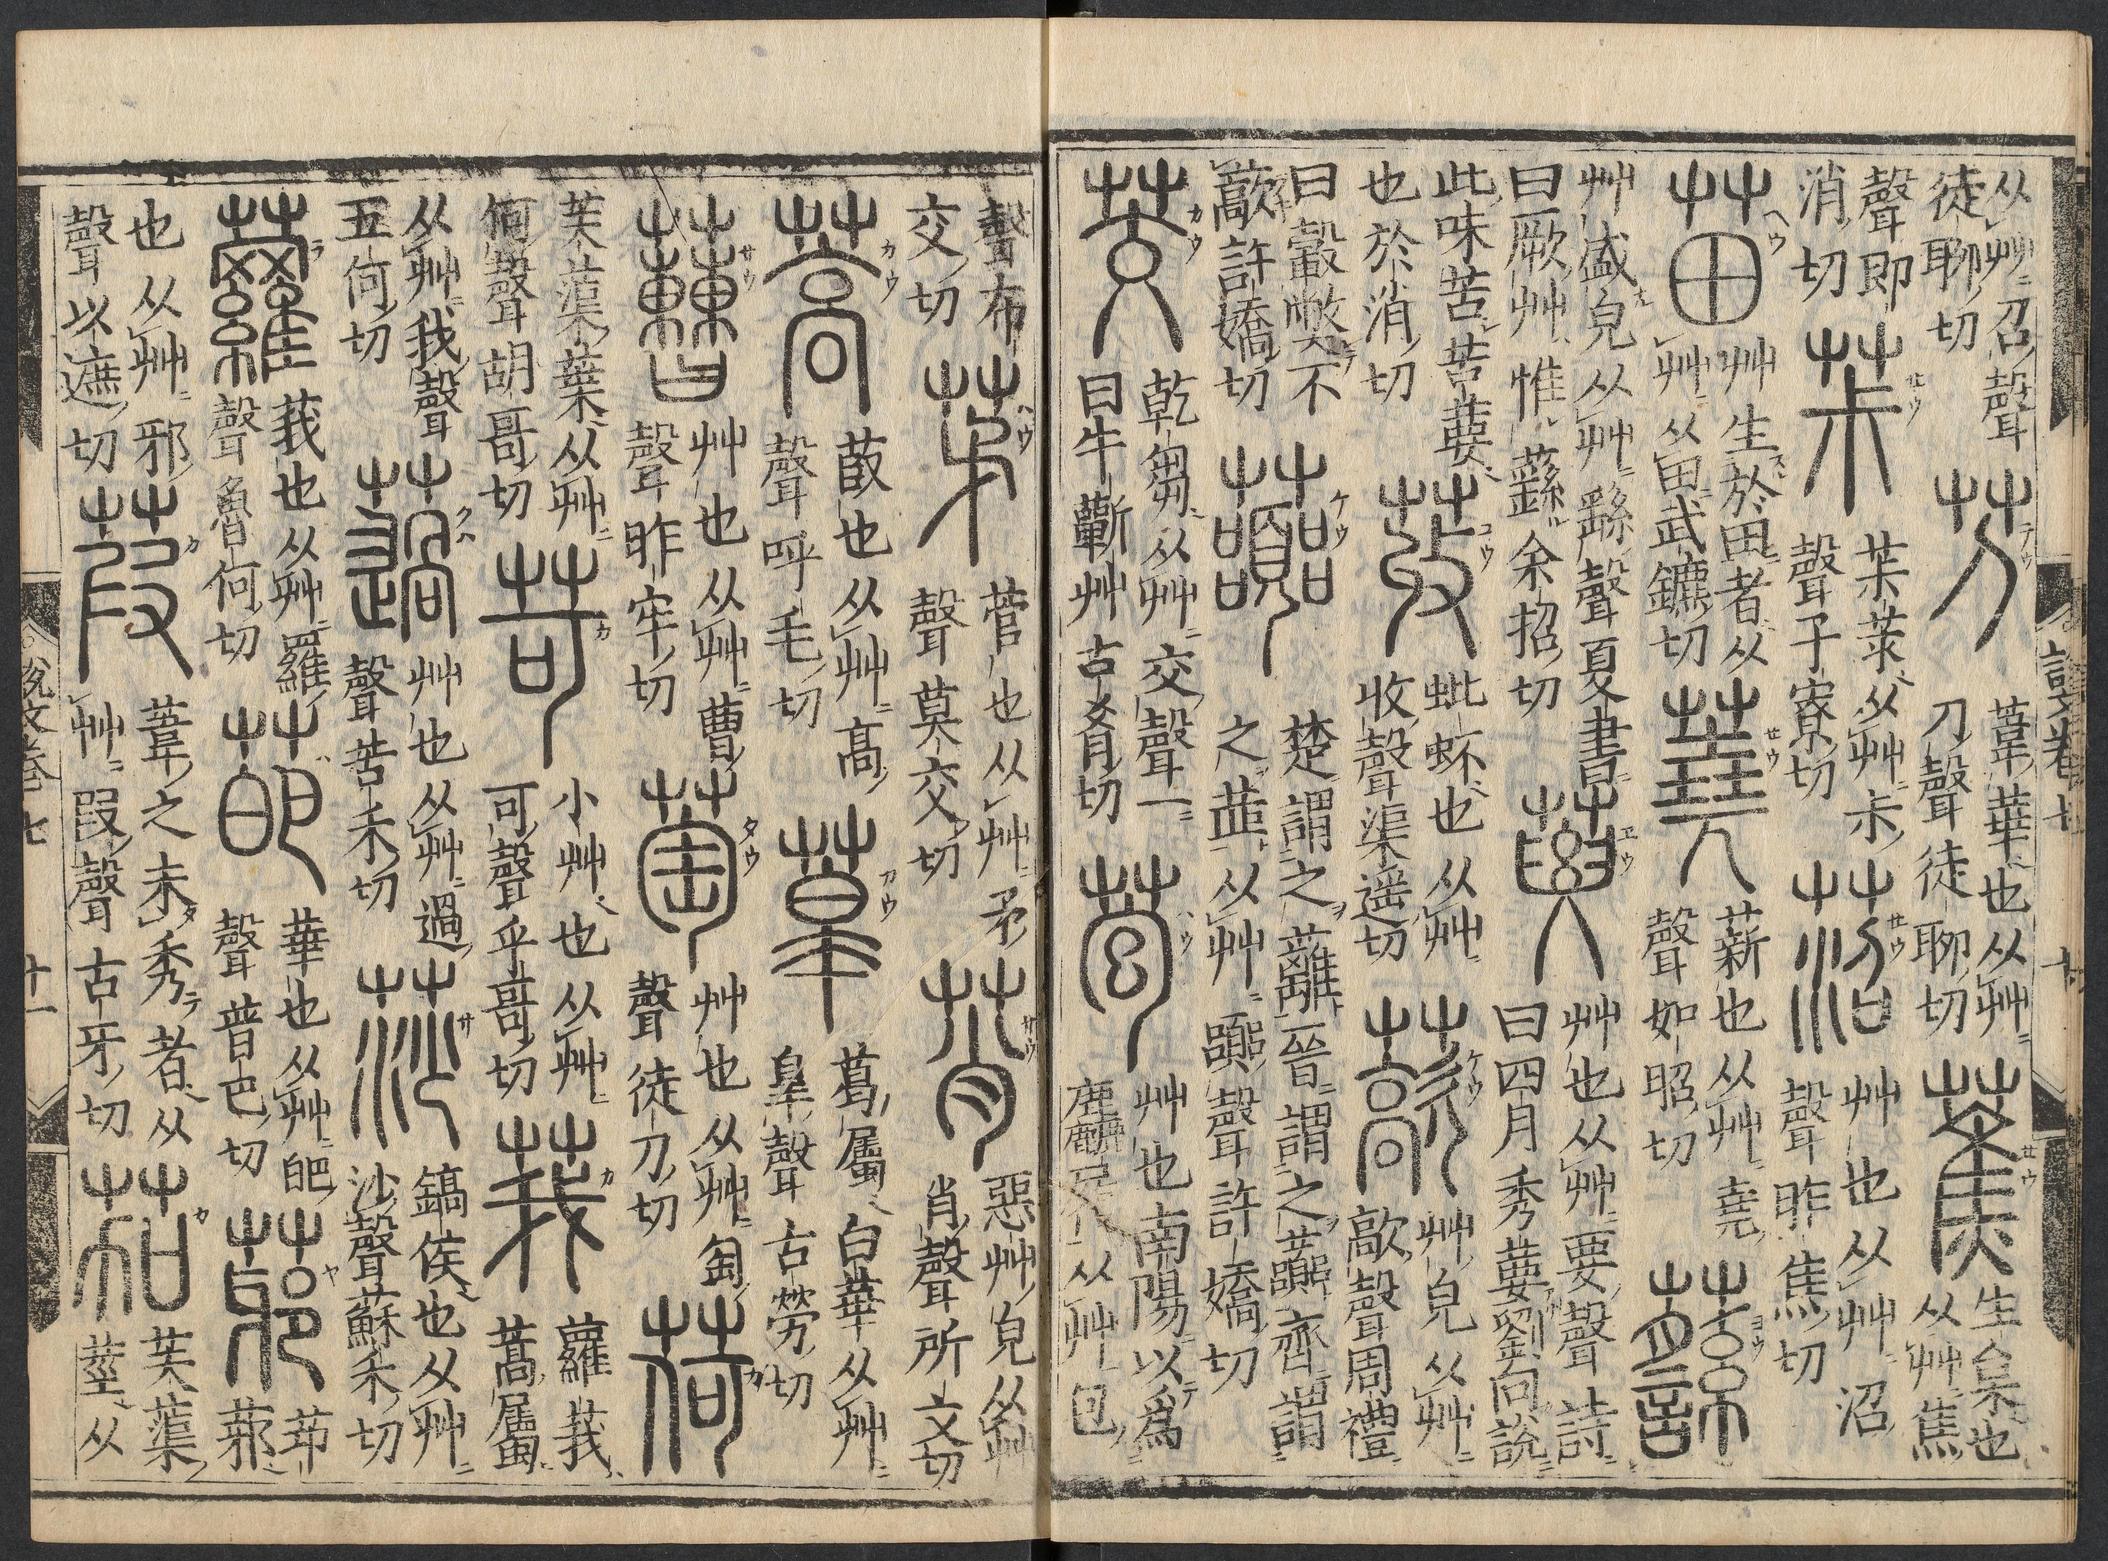 說文卷七 十
从艸召聲
徒聊切
芀
葦華也从艸
刀聲徒聊切
蕉
生枲也
从艸焦
聲即
消切
茮
茮莍从艸尗
聲子寮切
菬
艸也从艸沼
聲昨焦切
苗
艸生於田者从
艸从田武鑣切
蕘
薪也从艸堯
聲如昭切
蘨
艸盛皃从艸䌛聲夏書
曰厥艸惟蘨余招切
葽
艸也从艸要聲詩
曰四月秀葽劉向說
此味苦苦葽
也於消切
荍
蚍衃也从艸
收聲渠遥切
藃
艸皃从艸
歊聲周禮
曰轂獘不
藃許嬌切
虈
楚謂之蘺晉謂之虈齊謂
之茝从艸嚻聲許嬌切
茭
乾芻从艸交聲一
曰牛蘄艸古肴切
苞
艸也南陽以爲
麤履从艸包
聲布
交切
茅
菅也从艸矛
聲莫交切
莦
惡艸皃从艸
肖聲所交切
蒿
菣也从艸高
聲呼毛切
葛屬白華从艸
皋聲古勞切
蓸
艸也从艸曹
聲昨牢切
萄
艸也从艸匋
聲徒刀切
荷
芙蕖葉从艸
何聲胡哥切
苛
小艸也从艸
可聲乎哥切
莪
蘿莪
蒿屬
从艸我聲
五何切
薖
艸也从艸過
聲苦禾切
莎
鎬侯也从艸
沙聲蘇禾切
蘿
莪也从艸羅
聲魯何切
葩
華也从艸皅
聲普巴切
也从艸邪
聲以遮切
葭
葦之未秀者从
艸叚聲古牙切
茄
芙蕖
莖从
說文卷七 十一